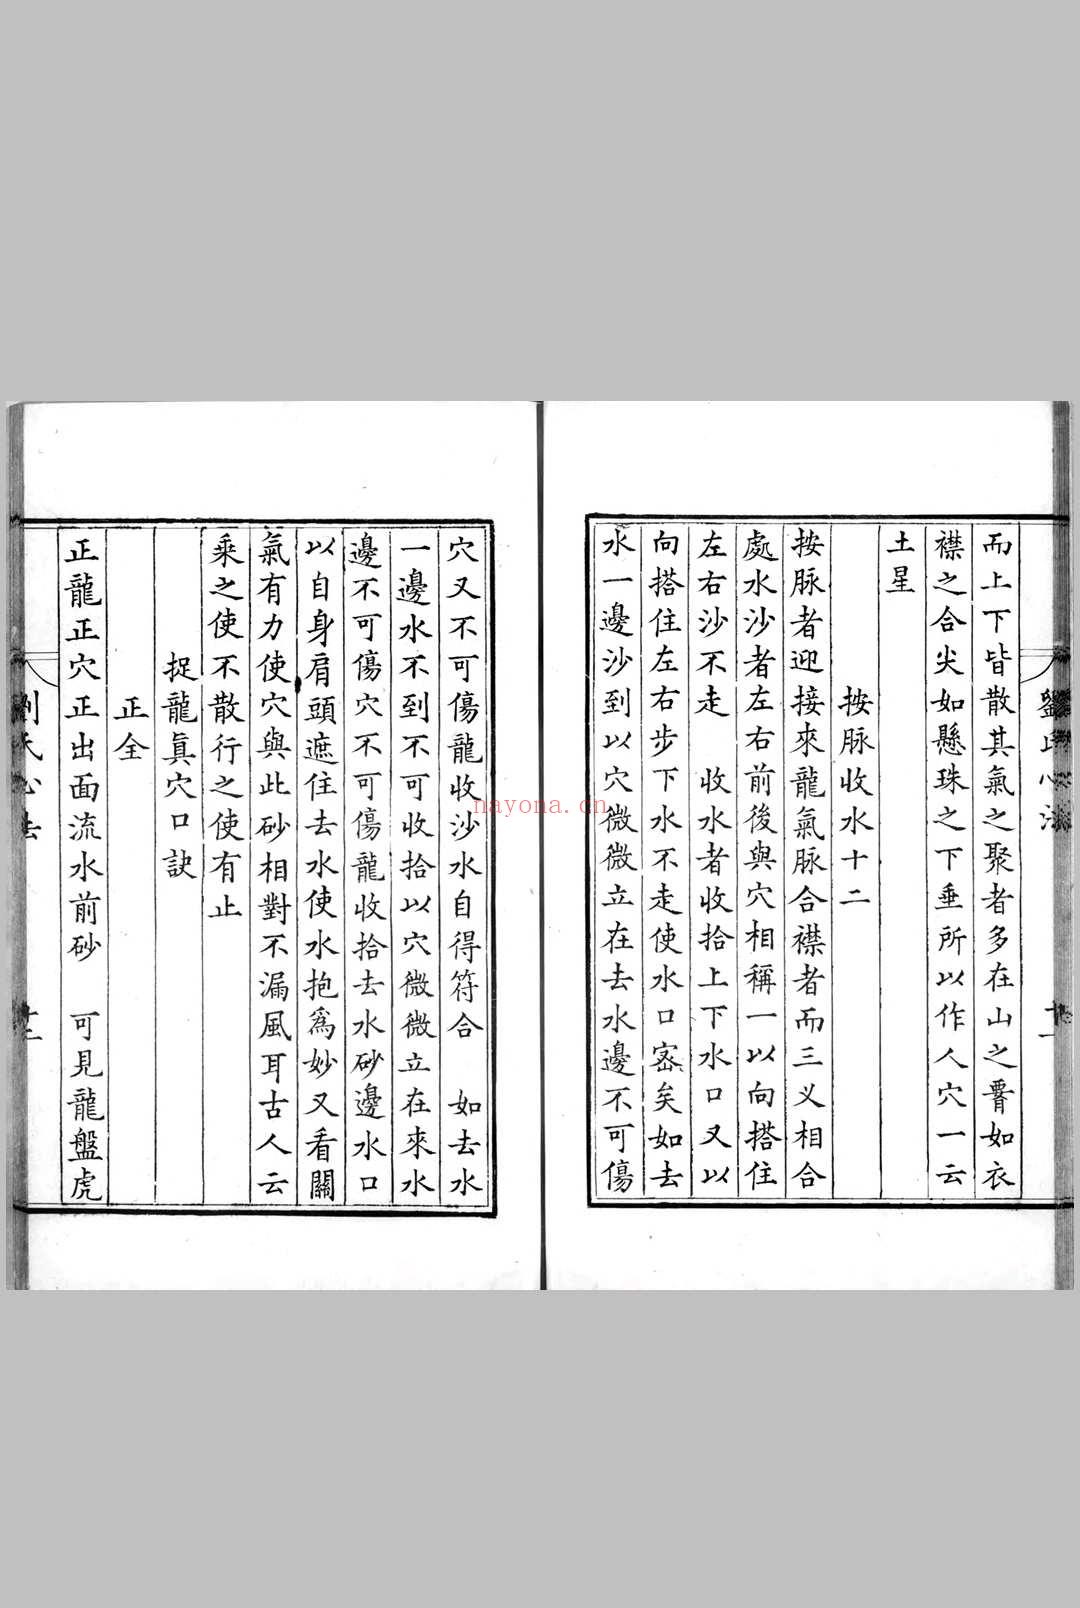 而上下皆散其氣之聚者多在山之脣如衣
襟之合尖如懸珠之下垂所以作人穴一云
土星
按脉收水十二
按脉者迎接來龍氣脉合襟者而三义相合
處水沙者左右前後與穴相稱一以向搭住
左右沙不走　收水者收拾上下水口又以
向搭住左右步下水不走使水口宻矣如去
水一邊沙到以穴微微立在去水邊不可傷
穴又不可傷龍收沙水自得符合　如去水
一邊水不到不可收拾以穴微微立在來水
邊不可傷穴不可傷龍收拾去水砂邊水口
以自身肩頭遮住去水使水抱爲妙又看關
氣有力使穴與此砂相對不漏風耳古人云
乘之使不散行之使有止
捉龍眞穴口訣
正全
正龍正穴正出面流水前砂　可見龍盤虎
nayona.cn